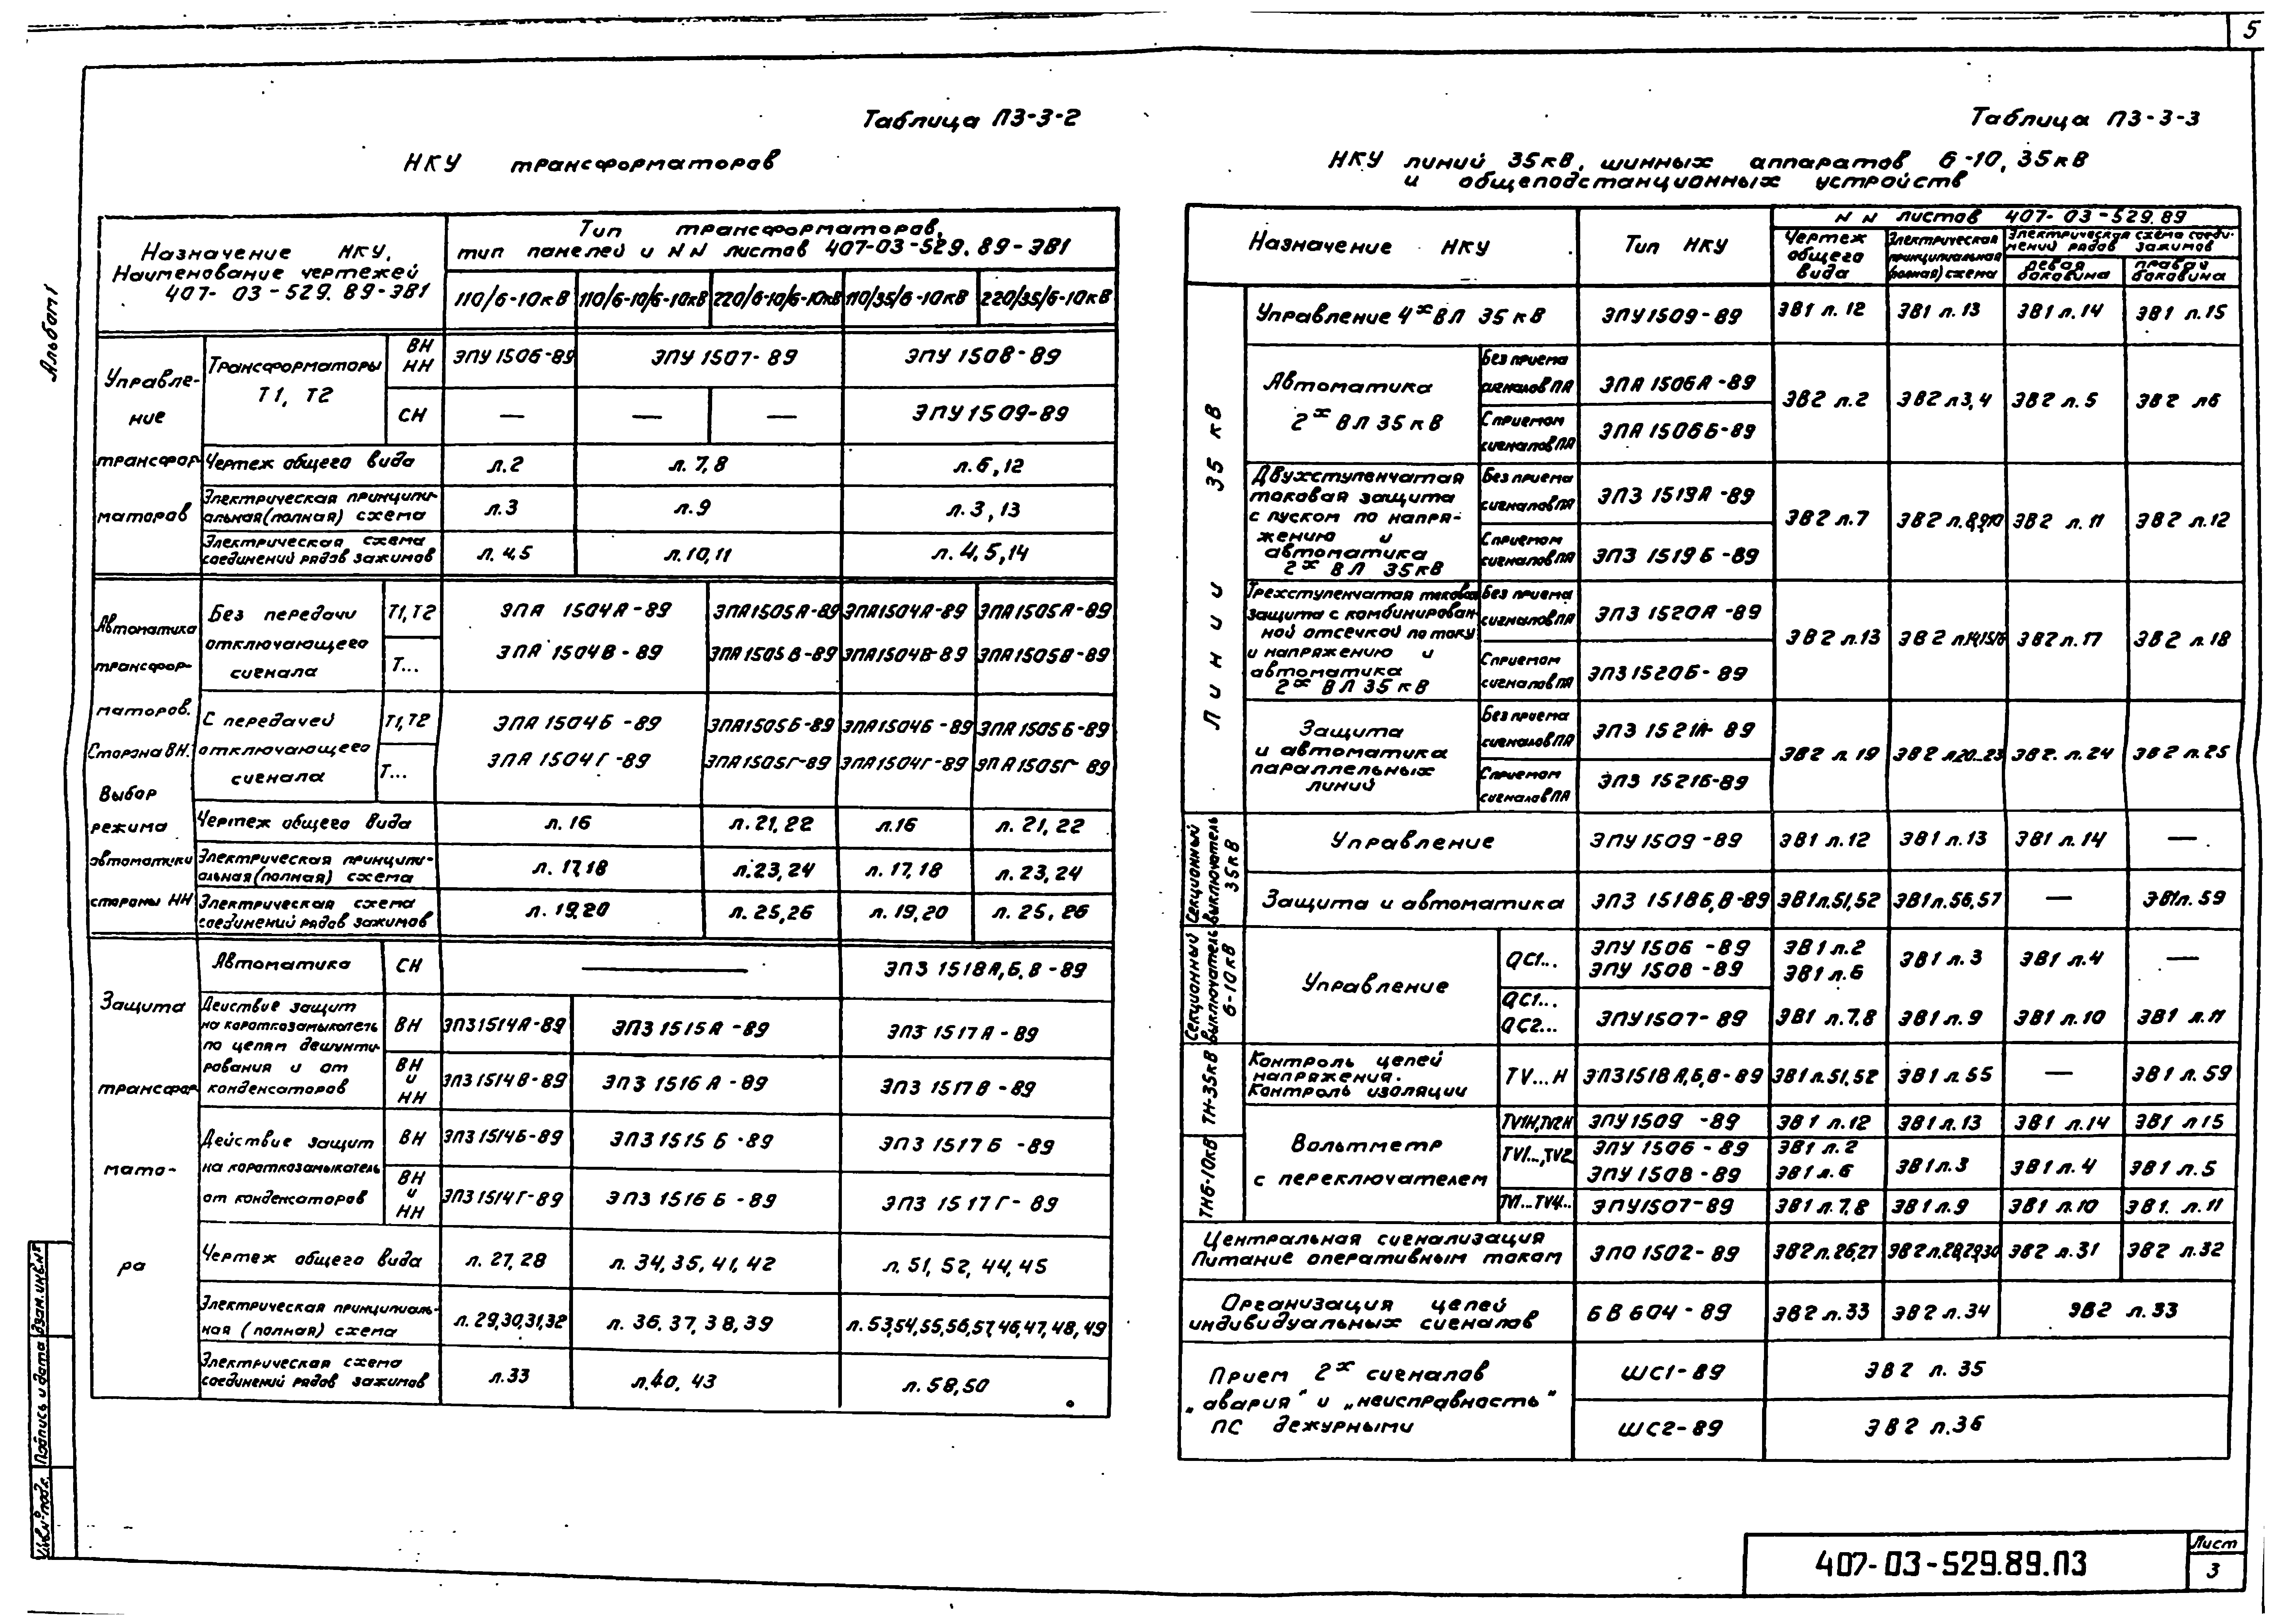 5
Альбом 1
Таблица ПЗ-3-2
НКУ трансформаторов
Назначение НКУ,
Наименование чертежей
407-03-529.89-ЭВ1
Тип трансформаторов,
тип панелей и NN листов 407-03-529.89-ЭВ1
110/6-10кВ 110/6-10/6-10кВ 220/6-10/6-10кВ 110/35/6-10кВ 220/35/6-10кВ
Управле-
ние
трансфор
маторов
Трансформаторы
Т1, Т2
ВН
НН
ЭПУ 1506-89 ЭПУ 1507-89 ЭПУ 1508-89
СН — — — ЭПУ 1509-89
Чертеж общего вида л.2 л.7,8 л.6,12
Электрическая принципи-
альная(полная) схема л.3 л.9 л.3,13
Электрическая схема
соединений рядов зажимов л.4,5 л.10,11 л.4,5,14
Автоматика
трансфор-
маторов.
Сторона ВН.
Выбор
режима
автоматики
стороны НН
Без передачи
отключающего
сигнала
Т1,Т2 ЭПА 1504А-89 ЭПА1505А-89 ЭПА1504А-89 ЭПА1505А-89
Т... ЭПА 1504В-89 ЭПА1505В-89 ЭПА1504В-89 ЭПА1505В-89
С передачей
отключающего
сигнала
Т1,Т2 ЭПА 1504Б-89 ЭПА1505Б-89 ЭПА1504Б-89 ЭПА1505Б-89
Т... ЭПА 1504Г-89 ЭПА1505Г-89 ЭПА1504Г-89 ЭПА1505Г-89
Чертеж общего вида л.16 л.21,22 л.16 л.21,22
Электрическая принципи-
альная(полная) схема л.17,18 л.23,24 л.17,18 л.23,24
Электрическая схема
соединений рядов зажимов л.19,20 л.25,26 л.19,20 л.25,26
Защита
трансфор
мато-
ра
Автоматика СН — ЭПЗ 1518А,Б,В-89
Действие защит
на короткозамыкатель
по цепям дешунти-
рования и от
конденсаторов
ВН ЭПЗ1514А-89 ЭПЗ 1515А-89 ЭПЗ 1517А-89
ВН
и
НН
ЭПЗ1514В-89 ЭПЗ 1516А-89 ЭПЗ 1517В-89
Действие защит
на короткозамыкатель
от конденсаторов
ВН ЭПЗ1514Б-89 ЭПЗ1515Б-89 ЭПЗ 1517Б-89
ВН
и
НН
ЭПЗ1514Г-89 ЭПЗ 1516Б-89 ЭПЗ 1517Г-89
Чертеж общего вида л.27,28 л.34,35,41,42 л.51,52,44,45
Электрическая принципиаль-
ная (полная) схема л.29,30,31,32 л.36,37,38,39 л.53,54,55,56,57,46,47,48,49
Электрическая схема
соединений рядов зажимов л.33 л.40,43 л.58,50
Таблица ПЗ-3-3
НКУ линий 35кВ, шинных аппаратов 6-10, 35кВ
и общеподстанционных устройств
Назначение НКУ
Тип НКУ
NN листов 407-03-529.89
Чертеж
общего
вида
Электрическая
принципиальная
(полная) схема
Электрическая схема соеди-
нений рядов зажимов
левая
боковина
правая
боковина
Линии 35кВ
Управление 4х ВЛ 35кВ ЭПУ1509-89 ЭВ1 л.12 ЭВ1 л.13 ЭВ1 л.14 ЭВ1 л.15
Автоматика
2х ВЛ 35кВ
Без приема
сигналов ПА ЭПА 1506А-89
С приемом
сигналов ПА ЭПА 1506Б-89
ЭВ2 л.2 ЭВ2 л3,4 ЭВ2 л.5 ЭВ2 л6
Двухступенчатая
токовая защита
с пуском по напря-
жению и
автоматика
2х ВЛ 35кВ
Без приема
сигналов ПА ЭПЗ 1519А-89
С приемом
сигналов ПА ЭПЗ 1519Б-89
ЭВ2 л.7 ЭВ2 л.8,9,10 ЭВ2 л.11 ЭВ2 л.12
Трехступенчатая токовая
защита с комбинирован-
ной отсечкой по току
и напряжению и
автоматика
2х ВЛ 35кВ
Без приема
сигналов ПА ЭПЗ 1520А-89
С приемом
сигналов ПА ЭПЗ1520Б-89
ЭВ2 л.13 ЭВ2 л.14,15,16 ЭВ2 л.17 ЭВ2 л.18
Защита
и автоматика
параллельных
линий
Без приема
сигналов ПА ЭПЗ 1521А-89
С приемом
сигналов ПА ЭПЗ 1521Б-89
ЭВ2 л.19 ЭВ2 л.20...23 ЭВ2. л.24 ЭВ2 л.25
Секционный
выключатель
35кВ
Управление ЭПУ1509-89 ЭВ1 л.12 ЭВ1 л.13 ЭВ1 л.14 —
Защита и автоматика ЭПЗ 1518Б,В-89 ЭВ1л.51,52 ЭВ1л.56,57 — ЭВ1л.59
Секционный
выключатель
6-10кВ
Управление
QC1... ЭПУ 1506-89 ЭВ1 л.2
ЭПУ 1508-89 ЭВ1 л.6
ЭВ1 л.3 ЭВ1 л.4 —
QC1...
QC2...
ЭПУ1507-89 ЭВ1 л.7,8 ЭВ1 л.9 ЭВ1 л.10 ЭВ1 л.11
ТН-35кВ
Контроль цепей
напряжения.
Контроль изоляции
TV...Н ЭПЗ1518А,Б,В-89 ЭВ1л.51,52 ЭВ1 л.55 — ЭВ1 л.59
ТН6-10кВ
Вольтметр
с переключателем
TV1Н,TV2Н ЭПУ1509-89 ЭВ1 л.12 ЭВ1 л.13 ЭВ1 л.14 ЭВ1 л15
TV1...,TV2 ЭПУ 1506-89 ЭВ1 л.2
ЭПУ 1508-89 ЭВ1 л.6
ЭВ1л.3 ЭВ1л.4 ЭВ1 л.5
TV1...TV4... ЭПУ1507-89 ЭВ1 л.7,8 ЭВ1 л.9 ЭВ1 л.10 ЭВ1. л.11
Центральная сигнализация
Питание оперативным током
ЭПО 1502-89 ЭВ2л.26,27 ЭВ2л.28,29,30 ЭВ2 л.31 ЭВ2 л.32
Организация цепей
индивидуальных сигналов
БВ 604-89 ЭВ2 л.33 ЭВ2 л.34 ЭВ2 л.33
Прием 2х сигналов
„авария" и „неисправность"
ПС дежурными
ШС1-89 ЭВ2 л.35
ШС2-89 ЭВ2 л.36
Инв.№подл. Подпись и дата Взам.инв.№
407-03-529.89.ПЗ
Лист
3